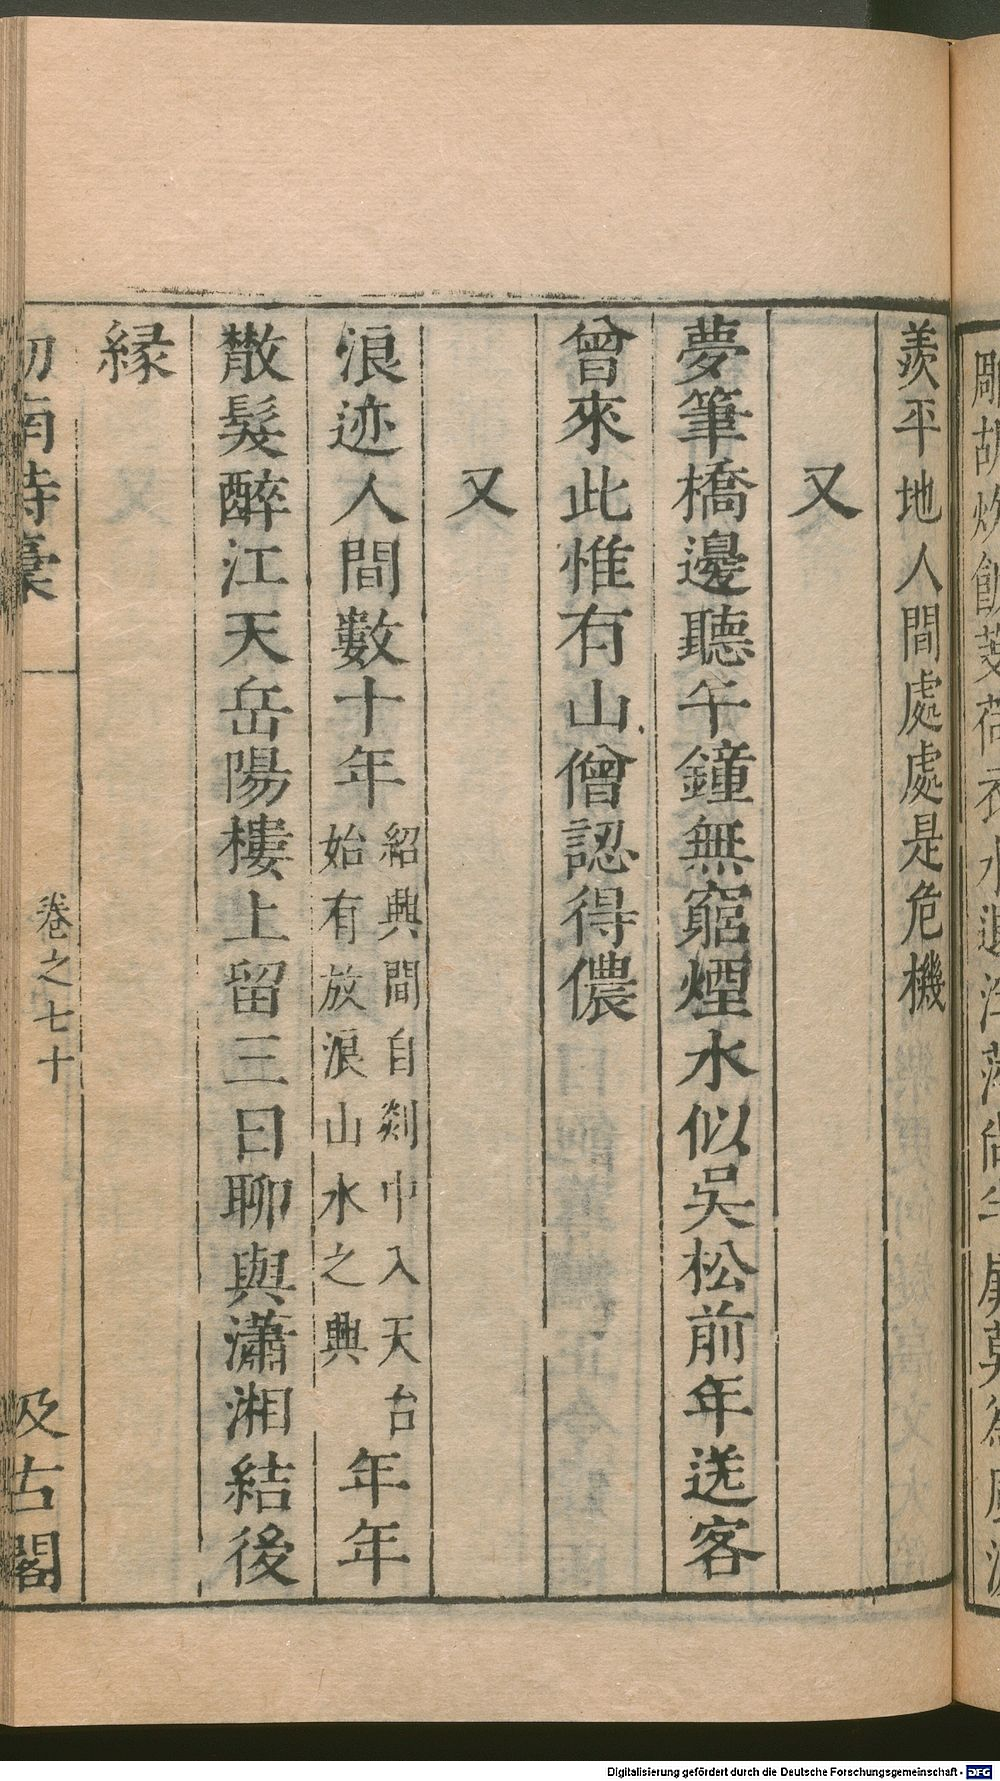 羨平地人間處處是危機
又
夢筆橋邊聽午鐘無窮煙水似吳松前年送客
曾來此惟有山僧認得儂
又
浪迹人間數十年紹興間自剡中入天台始有放浪山水之興年年
散髮醉江天岳陽樓上留三日聊與瀟湘結後
緣
劒南詩稾 卷之七十 汲古閣
Digitalisierung gefördert durch die Deutsche Forschungsgemeinschaft - DFG